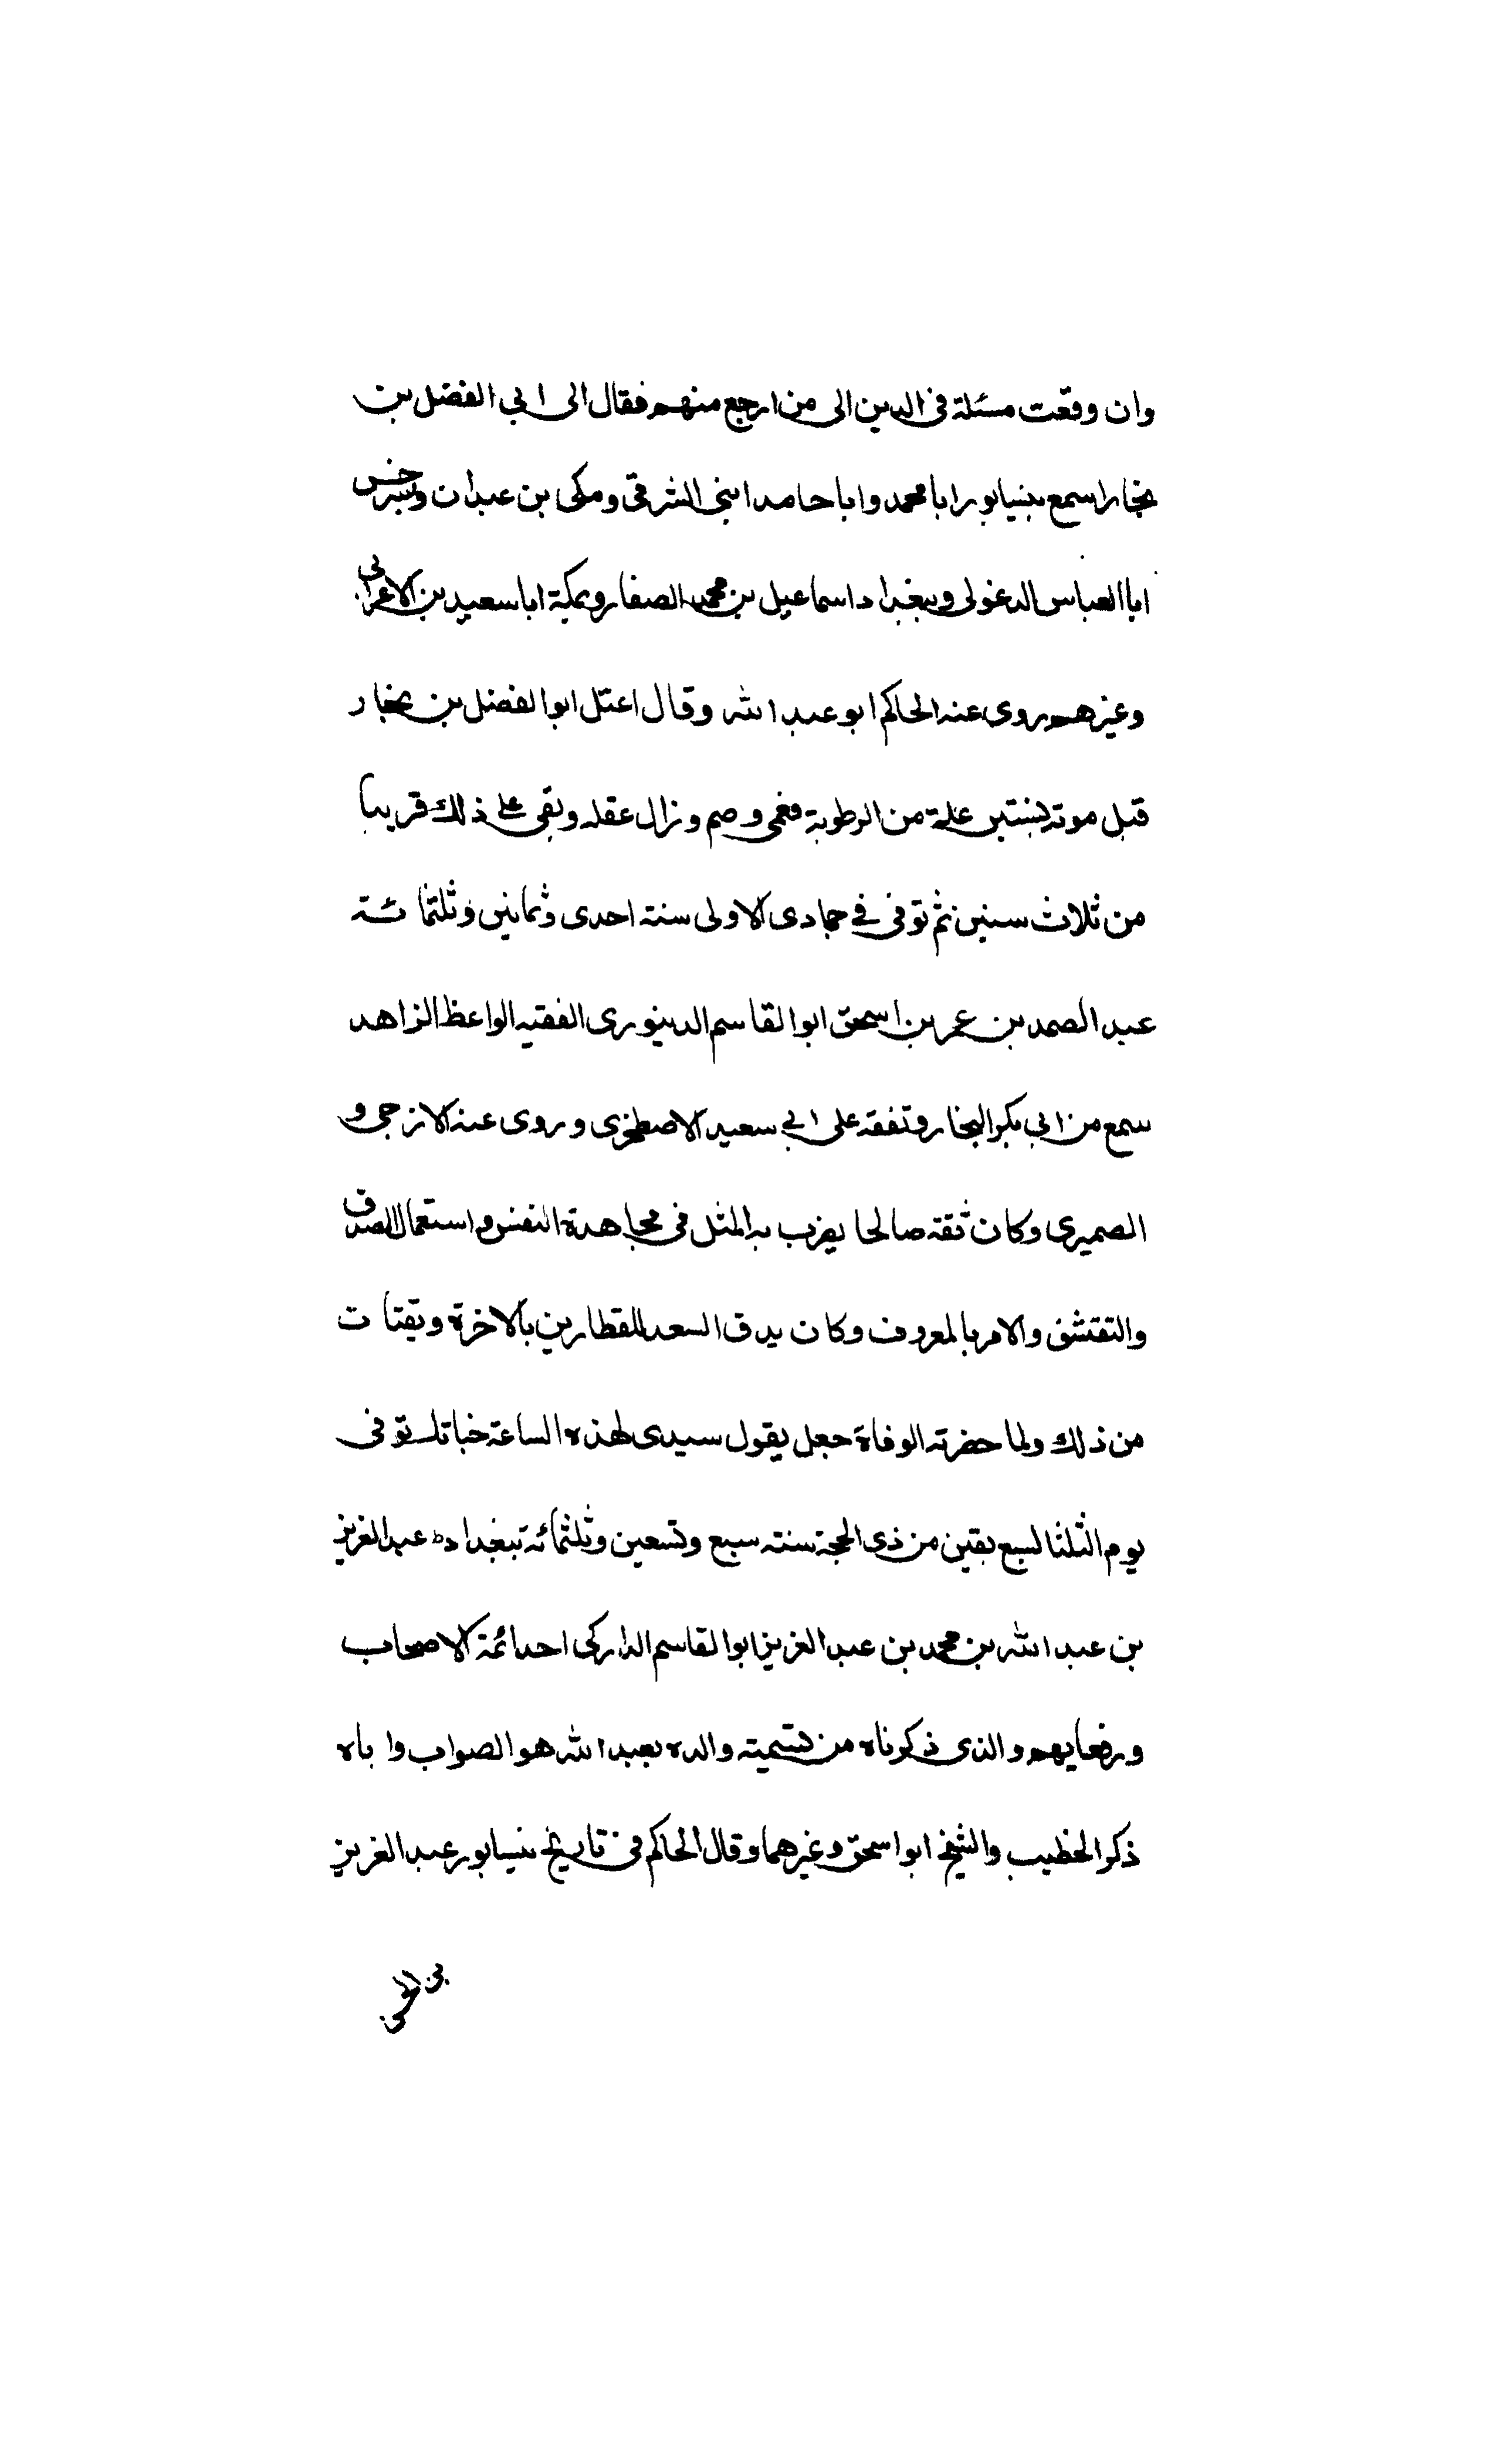 وان وقعت مسئلة في الدين الى من ارجع منهم فقال الى ابي الفضل بن
بخارا سمع بنيسابور ابا محمد وابا حامد ابني الشرقي ومكي بن عبدان وبسرخس
ابا العباس الدغولي وببغداد اسماعيل بن محمد الصفار وبمكة ابا سعيد بن الاعرابي
وغيرهم روى عنه الحاكم ابو عبد الله وقال اعتل ابو الفضل بن بخار
قبل موته بسنتين علة من الرطوبة فعمى وصم وزال عقله وبقى على ذلك قريبا
من ثلاث سنين ثم توفي في جمادى الاولى سنة احدى وثمانين وثلثمائة
عبد الصمد بن عمر بن اسحق ابو القاسم الدينورى الفقيه الواعظ الزاهد
سمع من ابي بكر البخار وتفقه على ابي سعيد الاصطخرى وروى عنه الازجي و
الصميرى وكان ثقة صالحا يضرب به المثل في مجاهدة النفس واستعمال الصدق
والتقشف والامر بالمعروف وكان يدق السعد للقطارين بالاخرة ويقتات
من ذلك ولما حضرته الوفاة جعل يقول سيدى لهذه الساعة خباتك توفي
يوم الثلثا لسبع بقين من ذى الحجة سنة سبع وتسعين وثلثمائة ببغداد عبد العزيز
بن عبد الله بن محمد بن عبد العزيز ابو القاسم الداركي احد ائمة الاصحاب
ورفعايهم والذى ذكرناه من تسمية والده بعبد الله هو الصواب واباه
ذكر الخطيب والشيخ ابو اسحق وغيرهما وقال الحاكم في تاريخ نيسابور عبد العزيز
بن الحسن